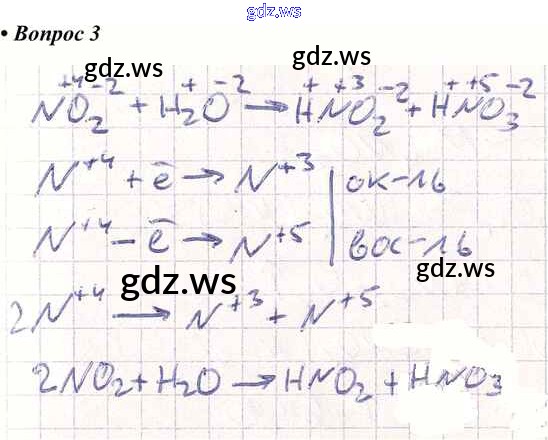 gdz.ws
• Вопрос 3
gdz.ws gdz.ws
N⁺⁴O₂⁻² + H₂⁺O⁻² → H⁺N⁺³O₂⁻² + H⁺N⁺⁵O₃⁻²
N⁺⁴ + ē → N⁺³ | ок-ль
N⁺⁴ - ē → N⁺⁵ | вос-ль
gdz.ws gdz.ws
2N⁺⁴ → N⁺³ + N⁺⁵
2NO₂ + H₂O → HNO₂ + HNO₃